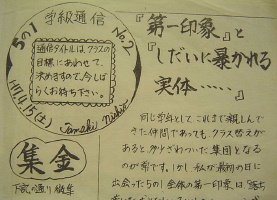 学級通信
5の1
No.2
通信タイトルは、クラスの
目標にあわせて、
決めますので、今しば
らくお待ち下さい。
H17.4.13(水)
Tomoki Nishio
集金
『第一印象』と
『しだいに暴かれる
実体……』
同じ学年として、これまで親しんで
きた仲間であっても、クラス替えが
あると、少しざわついた集団となる
のが常です。しかし、私が最初の日に
出会った5の1全体の第一印象は、